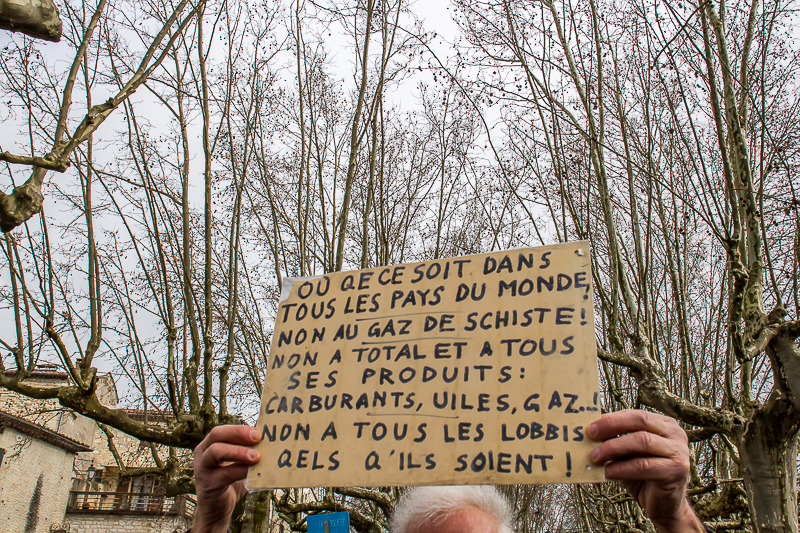 OU QE CE SOIT DANS
TOUS LES PAYS DU MONDE,
NON AU GAZ DE SCHISTE!
NON A TOTAL ET A TOUS
SES PRODUITS:
CARBURANTS, UILES, GAZ...!
NON A TOUS LES LOBBIS
QELS Q'ILS SOIENT!